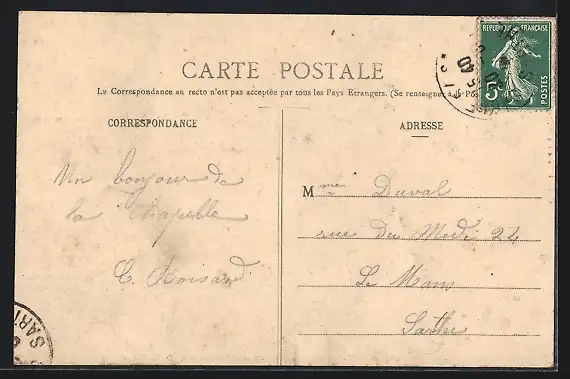 CARTE POSTALE
La Correspondance au recto n'est pas acceptée par tous les Pays Etrangers. (Se renseigner à la Po
CORRESPONDANCE
Un bonjour de
la Chapelle
C. Loisard
ADRESSE
Mme Duval
rue du Midi 24
Le Mans
Sarthe
REPUBLIQUE FRANÇAISE
5c
POSTES
SART